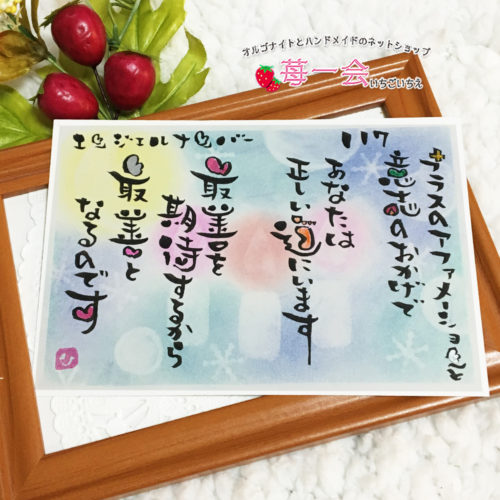 オルゴナイトとハンドメイドのネットショップ
苺一会いちごいちえ
エンジェルナンバー
117
プラスのアファメーションと
意志のおかげで
あなたは
正しい道にいます
最善を
期待するから
最善と
なるのです